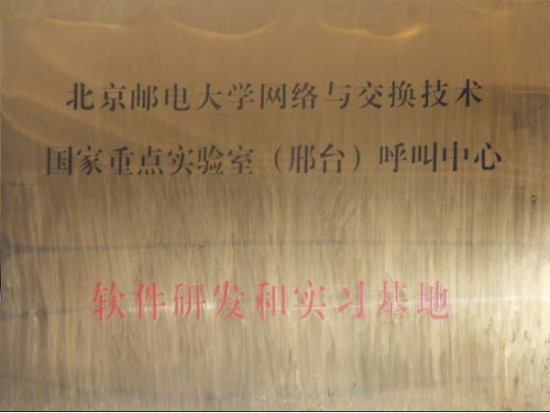 北京邮电大学网络与交换技术
国家重点实验室（邢台）呼叫中心
软件研发和实习基地